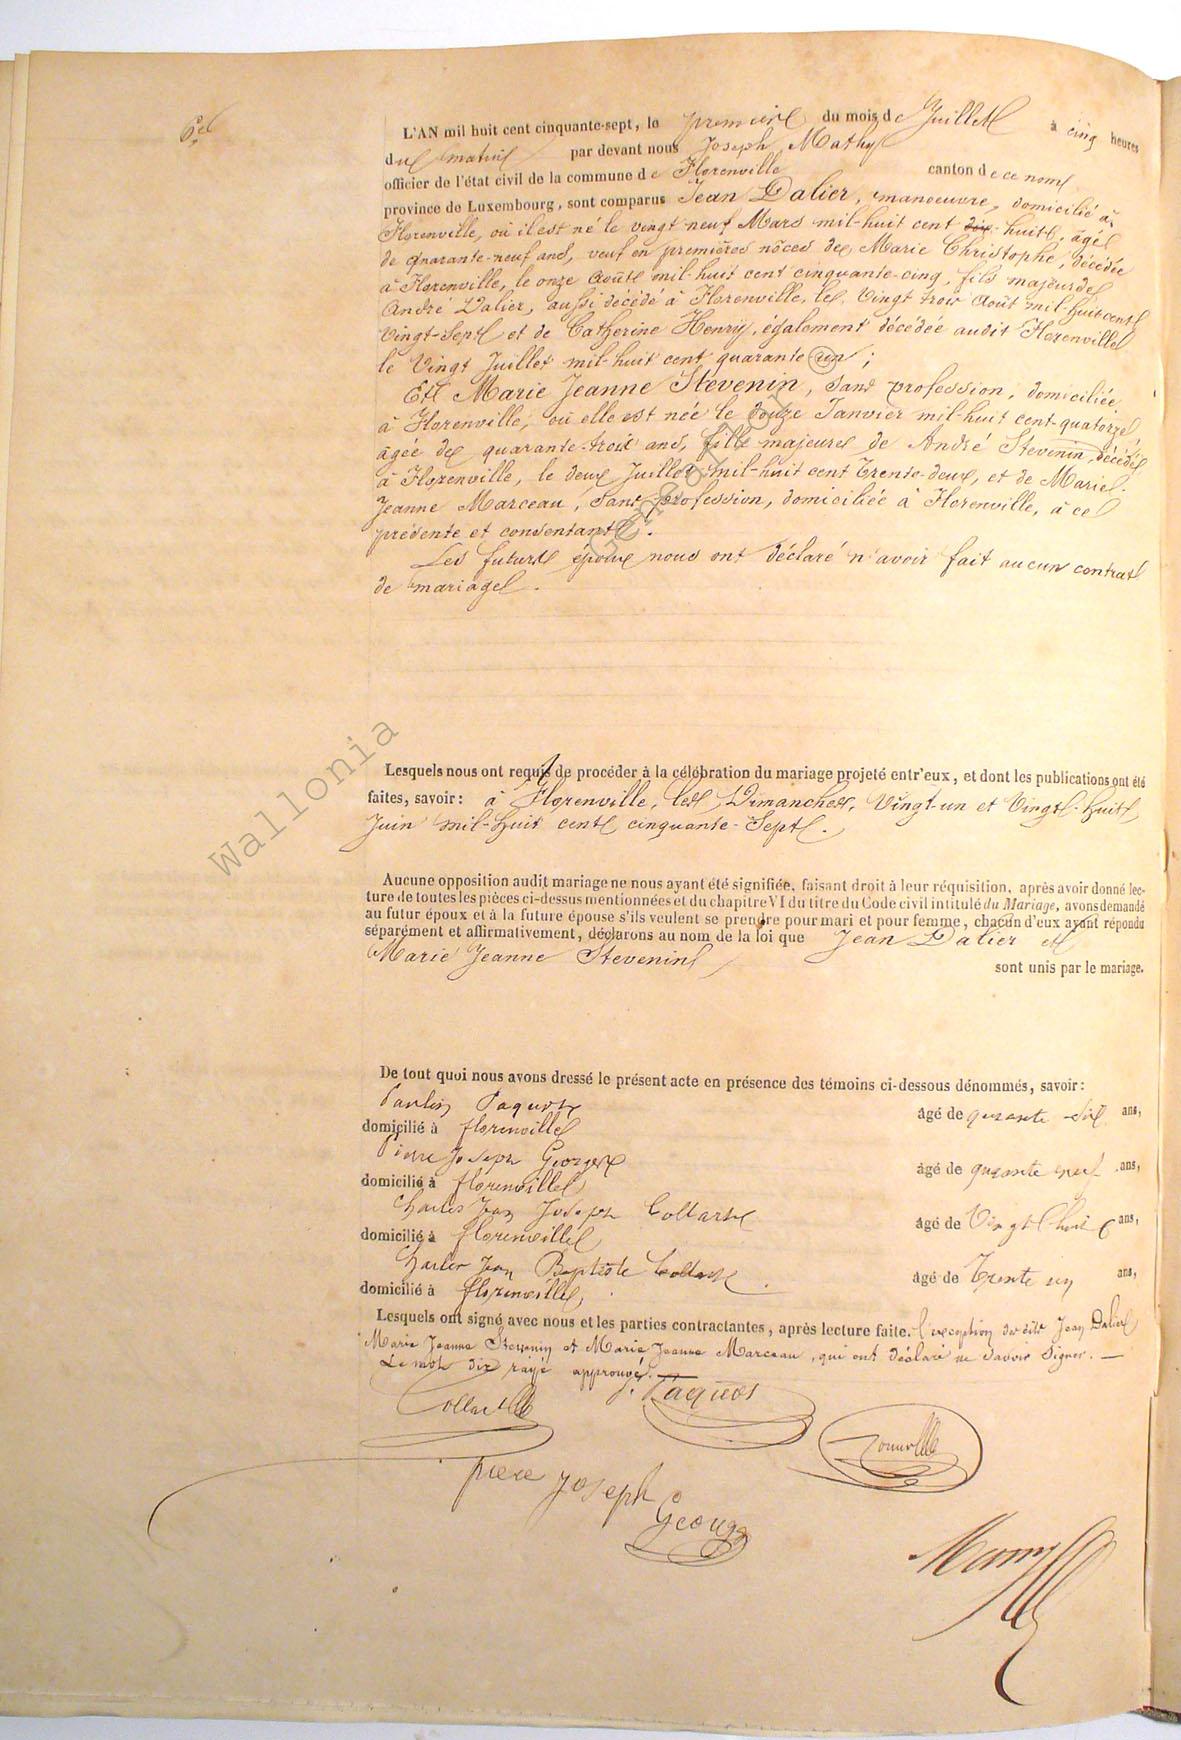 6e
L'AN mil huit cent cinquante-sept, le premier du mois de Juillet à cinq heures
du matin par devant nous Joseph Mathy
officier de l'état civil de la commune de Florenville canton de ce nom
province de Luxembourg, sont comparus Jean Dalier, manoeuvre, domicilié à
Florenville, où il est né le vingt neuf Mars mil-huit cent dix huit, âgé
de quarante-neuf ans, veuf en premières nôces de Marie Christophe, décédée
à Florenville, le onze Août mil-huit cent cinquante-cinq, fils majeur de
André Dalier, aussi décédé à Florenville, le Vingt trois Août mil-huit cent
Vingt-Sept et de Catherine Henry, également décédée audit Florenville
le Vingt Juillet mil-huit cent quarante un ;
Et Marie Jeanne Stevenin, sans profession, domiciliée
à Florenville, où elle est née le douze Janvier mil-huit cent-quatorze,
âgée de quarante-trois ans, fille majeure de André Stevenin, décédé
à Florenville, le deux Juillet mil-huit cent Trente-deux, et de Marie
Jeanne Marceau, sans profession, domiciliée à Florenville, à ce
présente et consentante.
Les futurs époux nous ont déclaré n'avoir fait aucun contrat
de mariage.
Lesquels nous ont requis de procéder à la célébration du mariage projeté entr'eux, et dont les publications ont été
faites, savoir : à Florenville, les Dimanches, Vingt-un et Vingt-huit
Juin mil-huit cent cinquante-Sept.
Aucune opposition audit mariage ne nous ayant été signifiée, faisant droit à leur réquisition, après avoir donné lec-
ture de toutes les pièces ci-dessus mentionnées et du chapitre VI du titre du Code civil intitulé du Mariage, avons demandé
au futur époux et à la future épouse s'ils veulent se prendre pour mari et pour femme, chacun d'eux ayant répondu
séparément et affirmativement, déclarons au nom de la loi que Jean Dalier et
Marie Jeanne Stevenin
sont unis par le mariage.
De tout quoi nous avons dressé le présent acte en présence des témoins ci-dessous dénommés, savoir :
Paulin Paquot âgé de quarante six ans,
domicilié à florenville
Pierre Joseph Georges âgé de quarante neuf ans,
domicilié à florenville
Charles Jean Joseph Collart âgé de Vingt huit ans,
domicilié à florenville
Charles Jean Baptiste Collart âgé de Trente un ans,
domicilié à florenville
Lesquels ont signé avec nous et les parties contractantes, après lecture faite. l'exception des dits Jean Dalier
Marie Jeanne Stevenin et Marie Jeanne Marceau, qui ont déclaré ne savoir signer.
Le mot dix rayé approuvé.
Collart P. Paquot
Pierre Joseph
George
Wallonia
Genealogy